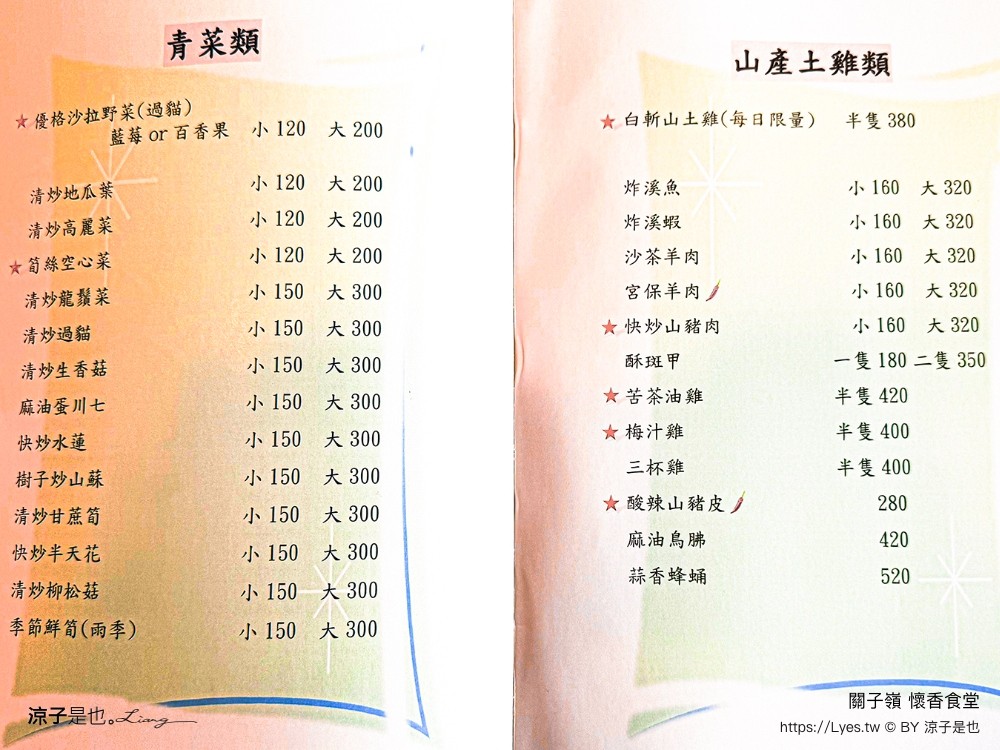 青菜類
★優格沙拉野菜(過貓)
藍莓 or 百香果 小 120 大 200
清炒地瓜葉 小 120 大 200
清炒高麗菜 小 120 大 200
★筍絲空心菜 小 120 大 200
清炒龍鬚菜 小 150 大 300
清炒過貓 小 150 大 300
清炒生香菇 小 150 大 300
麻油蛋川七 小 150 大 300
快炒水蓮 小 150 大 300
樹子炒山蘇 小 150 大 300
清炒甘蔗筍 小 150 大 300
快炒半天花 小 150 大 300
清炒柳松菇 小 150 大 300
季節鮮筍(雨季) 小 150 大 300
山產土雞類
★白斬山土雞(每日限量) 半隻 380
炸溪魚 小 160 大 320
炸溪蝦 小 160 大 320
沙茶羊肉 小 160 大 320
宮保羊肉 小 160 大 320
★快炒山豬肉 小 160 大 320
酥斑甲 一隻 180 二隻 350
★苦茶油雞 半隻 420
★梅汁雞 半隻 400
三杯雞 半隻 400
★酸辣山豬皮 280
麻油鳥胇 420
蒜香蜂蛹 520
涼子是也。Liang
關子嶺 懷香食堂
https://Lyes.tw © BY 涼子是也